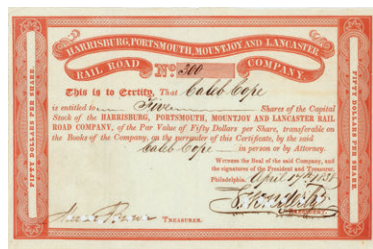 HARRISBURG, PORTSMOUTH, MOUNTJOY AND LANCASTER
RAIL ROAD No. 300 COMPANY.
This is to Certify, That Caleb Cope
is entitled to Five Shares of the Capital
Stock of the HARRISBURG, PORTSMOUTH, MOUNTJOY AND LANCASTER RAIL
ROAD COMPANY, of the Par Value of Fifty Dollars per Share, transferable on
the Books of the Company, on the surrender of this Certificate, by the said
Caleb Cope in person or by Attorney.
Witness the Seal of the said Company, and
the signatures of the President and Treasurer.
Philadelphia, April 17th 1838
PRESIDENT.
TREASURER.
FIFTY DOLLARS PER SHARE.
FIFTY DOLLARS PER SHARE.